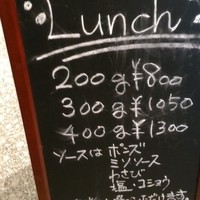 Lunch
200g ¥800
300g ¥1050
400g ¥1300
ソースは ポンズ
ミソソース
わさび
塩・コショウ
ます。